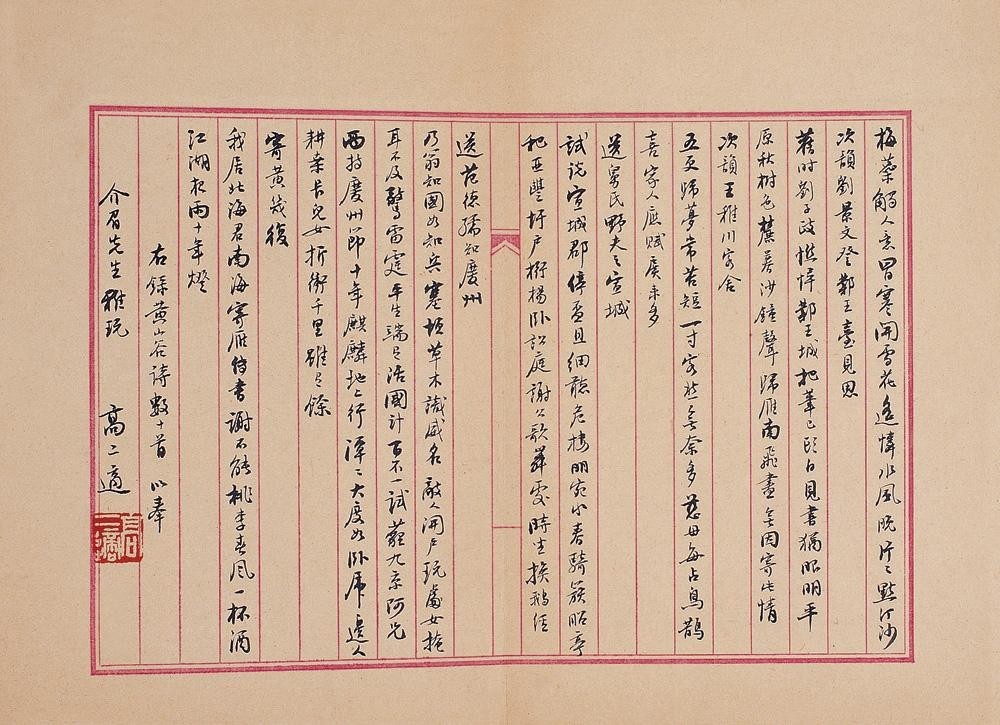 梅蘂觸人意冒寒開雪花遙憐水風晚片〻點汀沙
次韻劉景文登鄴王臺見思
舊時劉子政憔悴鄴王城把筆已頭白見書猶眼明平
原秋樹色麓暮沙鐘聲歸雁南飛盡無因寄此情
次韻王稚川客舍
五更歸夢常苦短一寸客愁無奈多慈母每占烏鵲
喜家人應賦扊扅多
送舅氏野夫之宣城
試說宣城郡停盃且細聽危樓明宛水春騎簇昭亭
䆉稏豐圩戶桁楊臥訟庭謝公歌舞處時出換鵝經
送范德孺知慶州
乃翁知國如知兵塞垣草木識威名敵人開戶玩處女掩
耳不及驚雷霆平生端有活國計百不一試薶九京阿兄
兩持慶州節十年麒麟地上行潭〻大度如臥虎邊人
耕桑長兒女折衝千里雖有餘
寄黃幾復
我居北海君南海寄雁傳書謝不能桃李春風一杯酒
江湖夜雨十年燈
右錄黃山谷詩數十首以奉
介眉先生雅玩 高二適
高二適